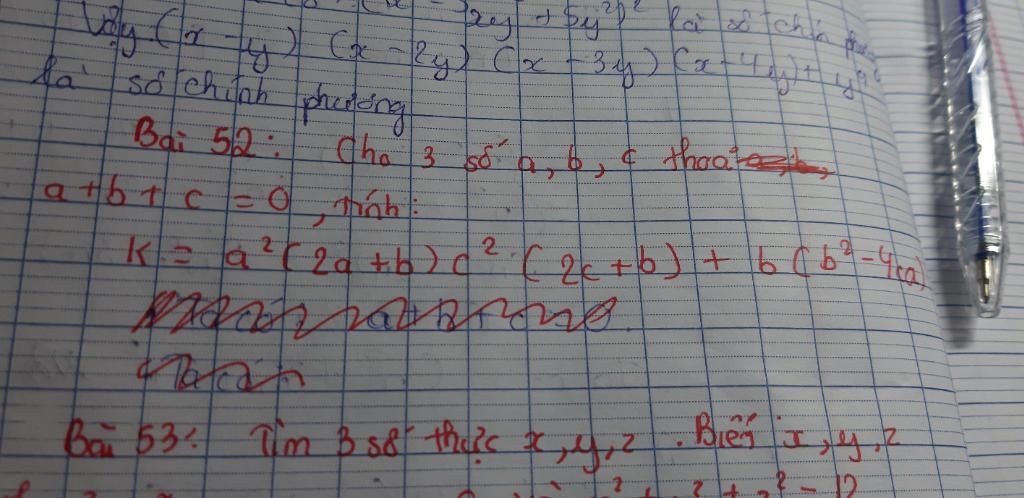 2xy + 5y²)² là số chính
Vậy (x - y) (x - 2y) (x - 3y) (x - 4y) + y⁴
là số chính phương
Bài 52: Cho 3 số a, b, c thoả
a + b + c = 0, tính:
K = a² (2a + b) c² (2c + b) + b (b² - 4ca)
Bài 53: Tìm 3 số thực x, y, z. Biết x, y, z